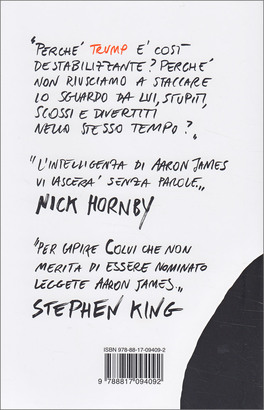 "PERCHÉ TRUMP È COSÌ
DESTABILIZZANTE? PERCHÉ
NON RIUSCIAMO A STACCARE
LO SGUARDO DA LUI, STUPITI,
SCOSSI E DIVERTITI
NELLO STESSO TEMPO?"
"L'INTELLIGENZA DI AARON JAMES
VI LASCERÀ SENZA PAROLE"
NICK HORNBY
"PER CAPIRE COLUI CHE NON
MERITA DI ESSERE NOMINATO
LEGGETE AARON JAMES."
STEPHEN KING
ISBN 978-88-17-09409-2
9 788817 094092